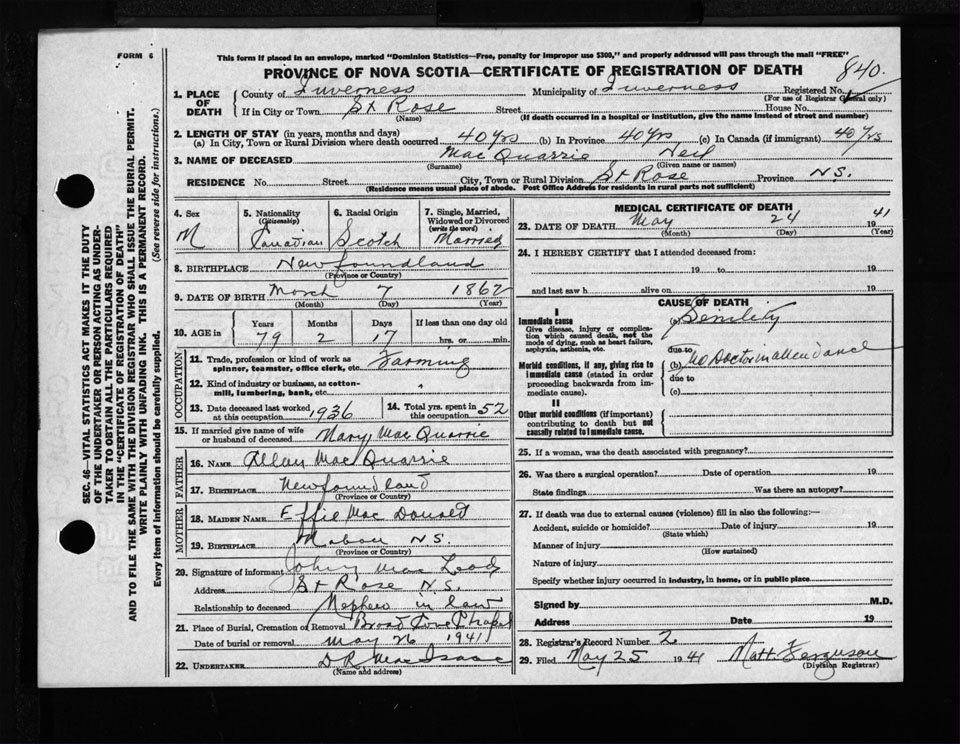 FORM 6
This form if placed in an envelope, marked "Dominion Statistics—Free, penalty for improper use $300," and properly addressed will pass through the mail "FREE"
PROVINCE OF NOVA SCOTIA—CERTIFICATE OF REGISTRATION OF DEATH
840.
1. PLACE OF DEATH County of Inverness Municipality of Inverness Registered No.
(For use of Registrar General only)
If in City or Town St Rose Street House No.
(Name) (If death occurred in a hospital or institution, give the name instead of street and number)
2. LENGTH OF STAY (in years, months and days)
(a) In City, Town or Rural Division where death occurred 40 yrs (b) In Province 40 yrs (c) In Canada (if immigrant) 40 yrs
3. NAME OF DECEASED MacQuarrie Neil
(Surname) (Given name or names)
RESIDENCE No. Street City, Town or Rural Division St Rose Province N.S.
(Residence means usual place of abode. Post Office Address for residents in rural parts not sufficient)
4. Sex M
5. Nationality (Citizenship) Canadian
6. Racial Origin Scotch
7. Single, Married, Widowed or Divorced (write the word) Married
8. BIRTHPLACE Newfoundland
(Province or Country)
9. DATE OF BIRTH March 7 1862
(Month) (Day) (Year)
10. AGE in Years Months Days If less than one day old
79 2 17 hrs. or min.
OCCUPATION
11. Trade, profession or kind of work as spinner, teamster, office clerk, etc. Farming
12. Kind of industry or business, as cotton-mill, lumbering, bank, etc. "
13. Date deceased last worked at this occupation 1936
14. Total yrs. spent in this occupation 52
15. If married give name of wife or husband of deceased Mary MacQuarrie
FATHER
16. NAME Allan MacQuarrie
17. BIRTHPLACE Newfoundland
(Province or Country)
MOTHER
18. MAIDEN NAME Effie MacDonald
19. BIRTHPLACE Mabou N.S.
(Province or Country)
20. Signature of informant John Mac Leod
Address St Rose N.S.
Relationship to deceased Nephew in law
21. Place of Burial, Cremation or Removal Broad Cove Chapel
Date of burial or removal May 26 1941
22. UNDERTAKER D R MacIsaac
(Name and address)
MEDICAL CERTIFICATE OF DEATH
23. DATE OF DEATH May 24 1941
(Month) (Day) (Year)
24. I HEREBY CERTIFY that I attended deceased from:
19 to 19
and last saw h alive on 19
CAUSE OF DEATH
I
Immediate cause (a) Senility
Give disease, injury or complication which caused death, not the mode of dying, such as heart failure, asphyxia, asthenia, etc.
due to
Morbid conditions, if any, giving rise to immediate cause (stated in order proceeding backwards from immediate cause). (b) no Doctor in attendance
due to
(c)
II
Other morbid conditions (if important) contributing to death but not causally related to immediate cause.
25. If a woman, was the death associated with pregnancy?
26. Was there a surgical operation? Date of operation 19
State findings Was there an autopsy?
27. If death was due to external causes (violence) fill in also the following:—
Accident, suicide or homicide? Date of injury 19
(State which)
Manner of injury
(How sustained)
Nature of injury
Specify whether injury occurred in industry, in home, or in public place
Signed by M.D.
Address Date 19
28. Registrar's Record Number 2
29. Filed May 25 1941 Matt. Ferguson
(Division Registrar)
SEC. 46—VITAL STATISTICS ACT MAKES IT THE DUTY
OF THE UNDERTAKER OR PERSON ACTING AS UNDER-
TAKER TO OBTAIN ALL THE PARTICULARS REQUIRED
IN THE "CERTIFICATE OF REGISTRATION OF DEATH"
AND TO FILE THE SAME WITH THE DIVISION REGISTRAR WHO SHALL ISSUE THE BURIAL PERMIT.
WRITE PLAINLY WITH UNFADING INK. THIS IS A PERMANENT RECORD.
Every item of information should be carefully supplied. (See reverse side for instructions.)